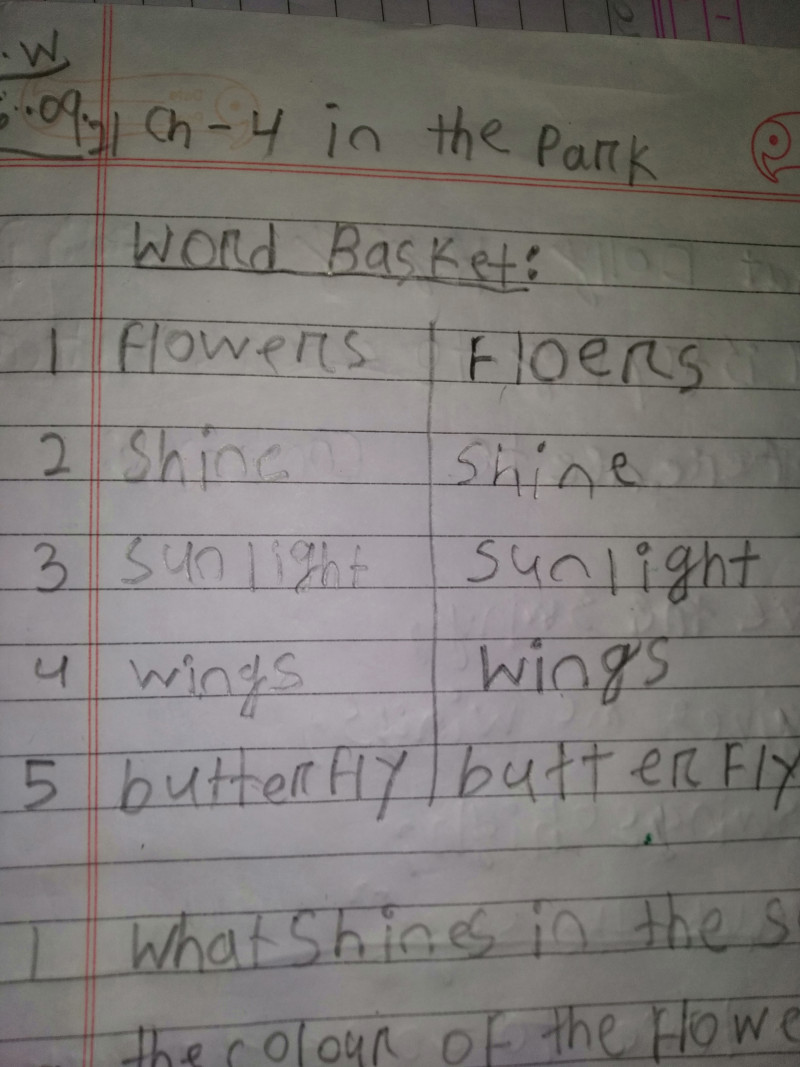 .W
.09.21 Ch-4 in the Park
Word Basket:
1 Flowers Floers
2 Shine Shine
3 Sunlight Sunlight
4 wings wings
5 butterfly butterFly
1 What Shines in the
the colour of the Flowe